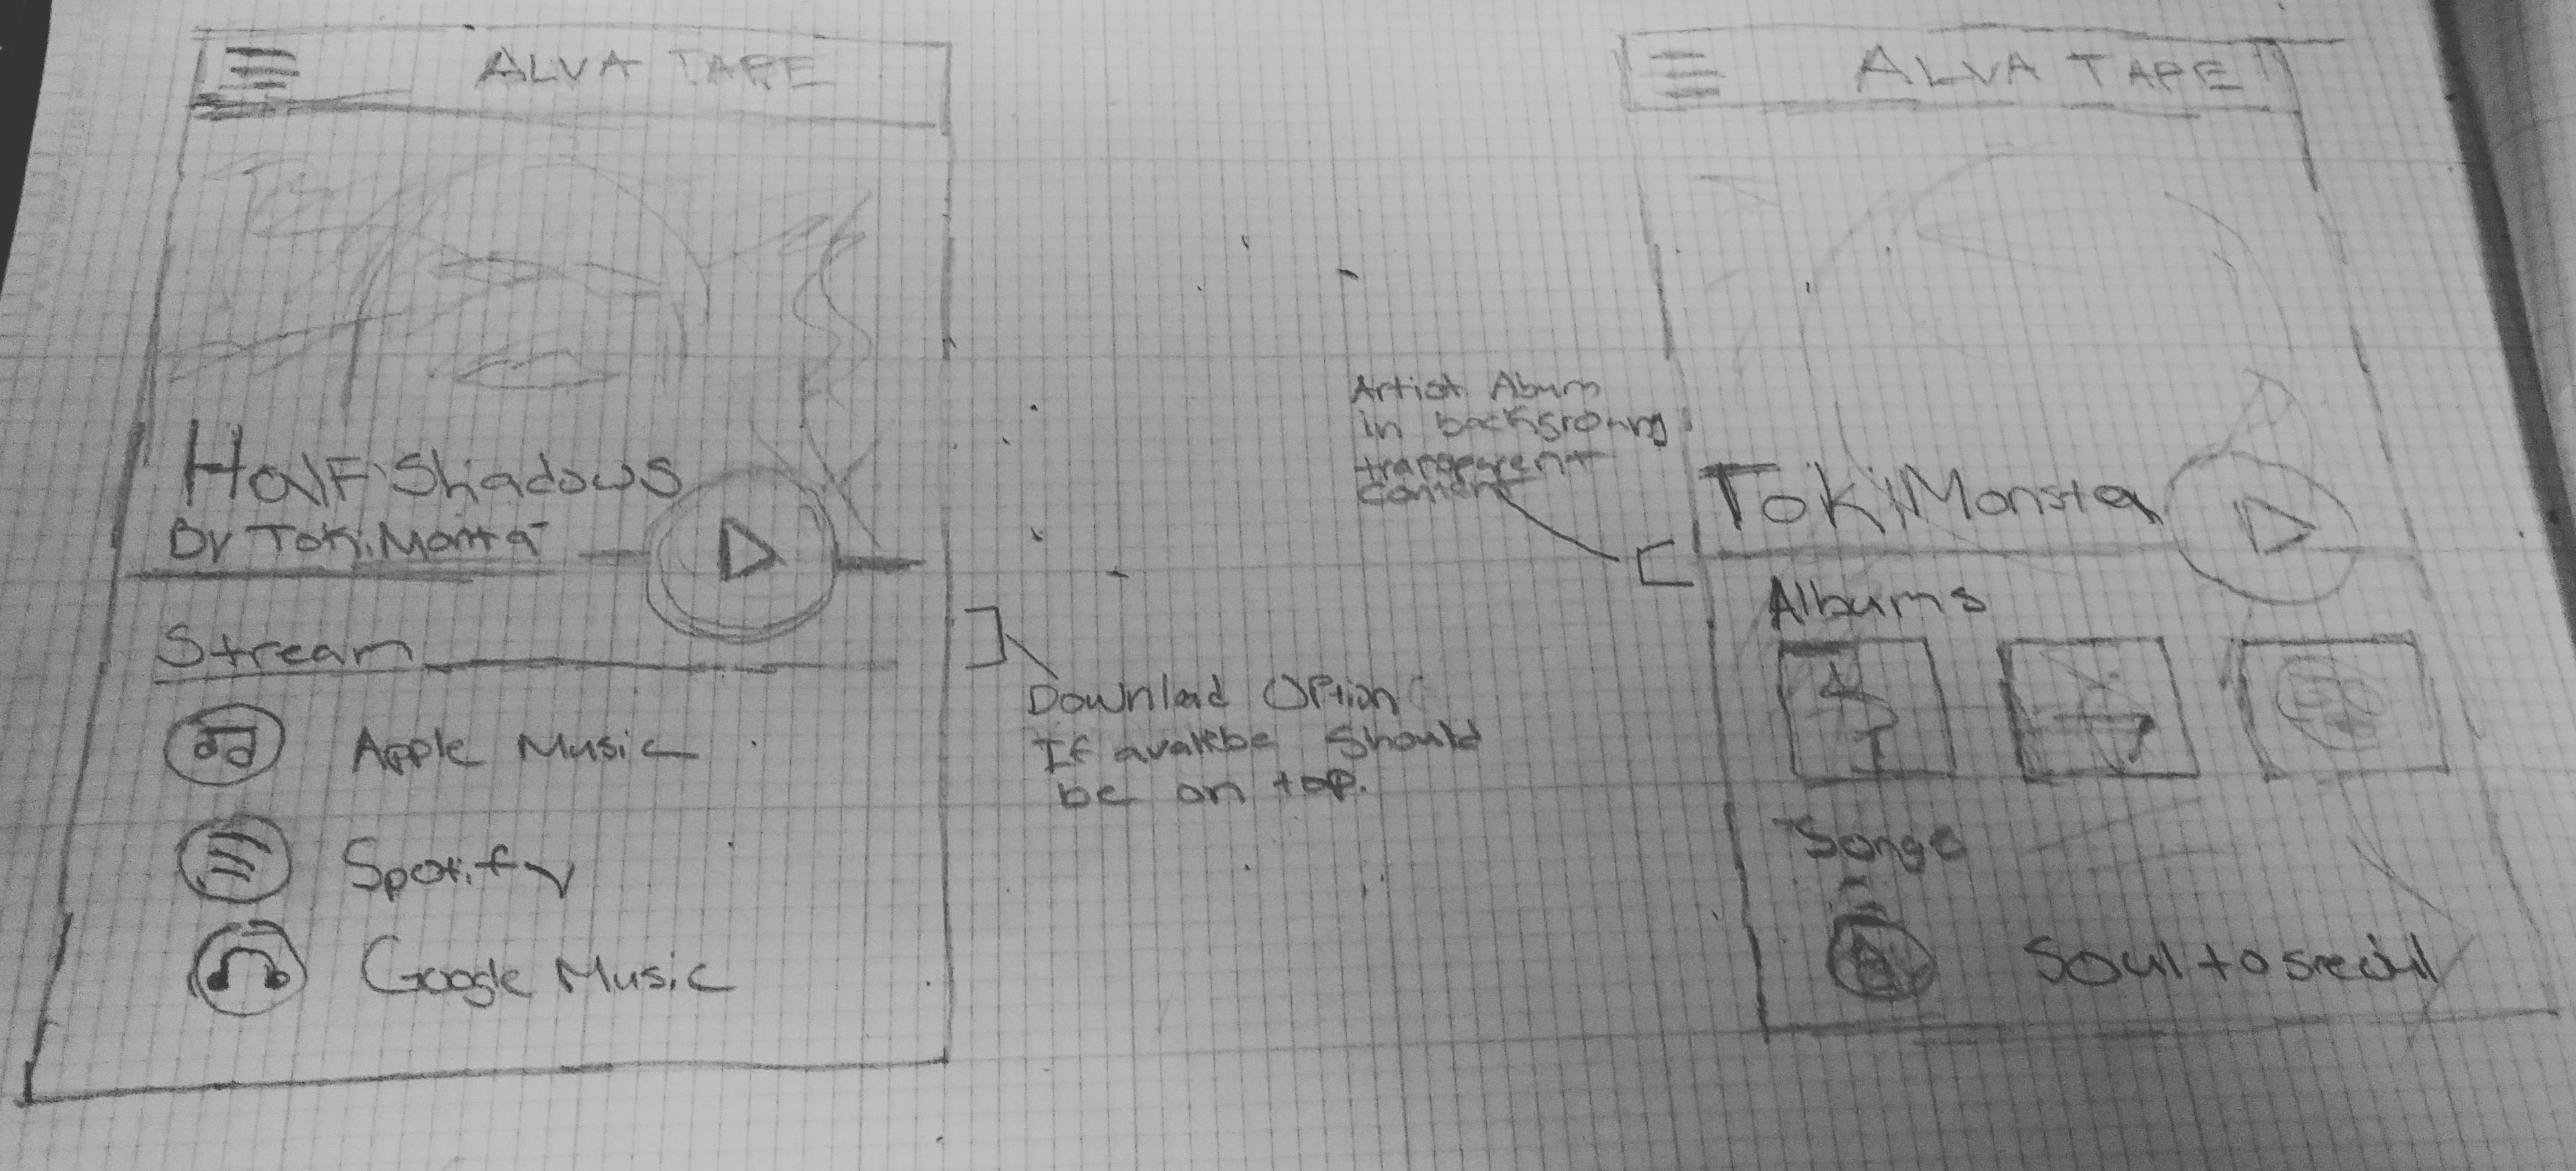 ALVA TAPE
Half Shadows
By Toki.Monsta
Stream
Apple Music
Spotify
Google Music
Downlad Option
If avalkbe should
be on top.
Artist Abum
in backgroung
transperent
content
ALVA TAPE
TokiMonsta
Albums
Songs
Soul to